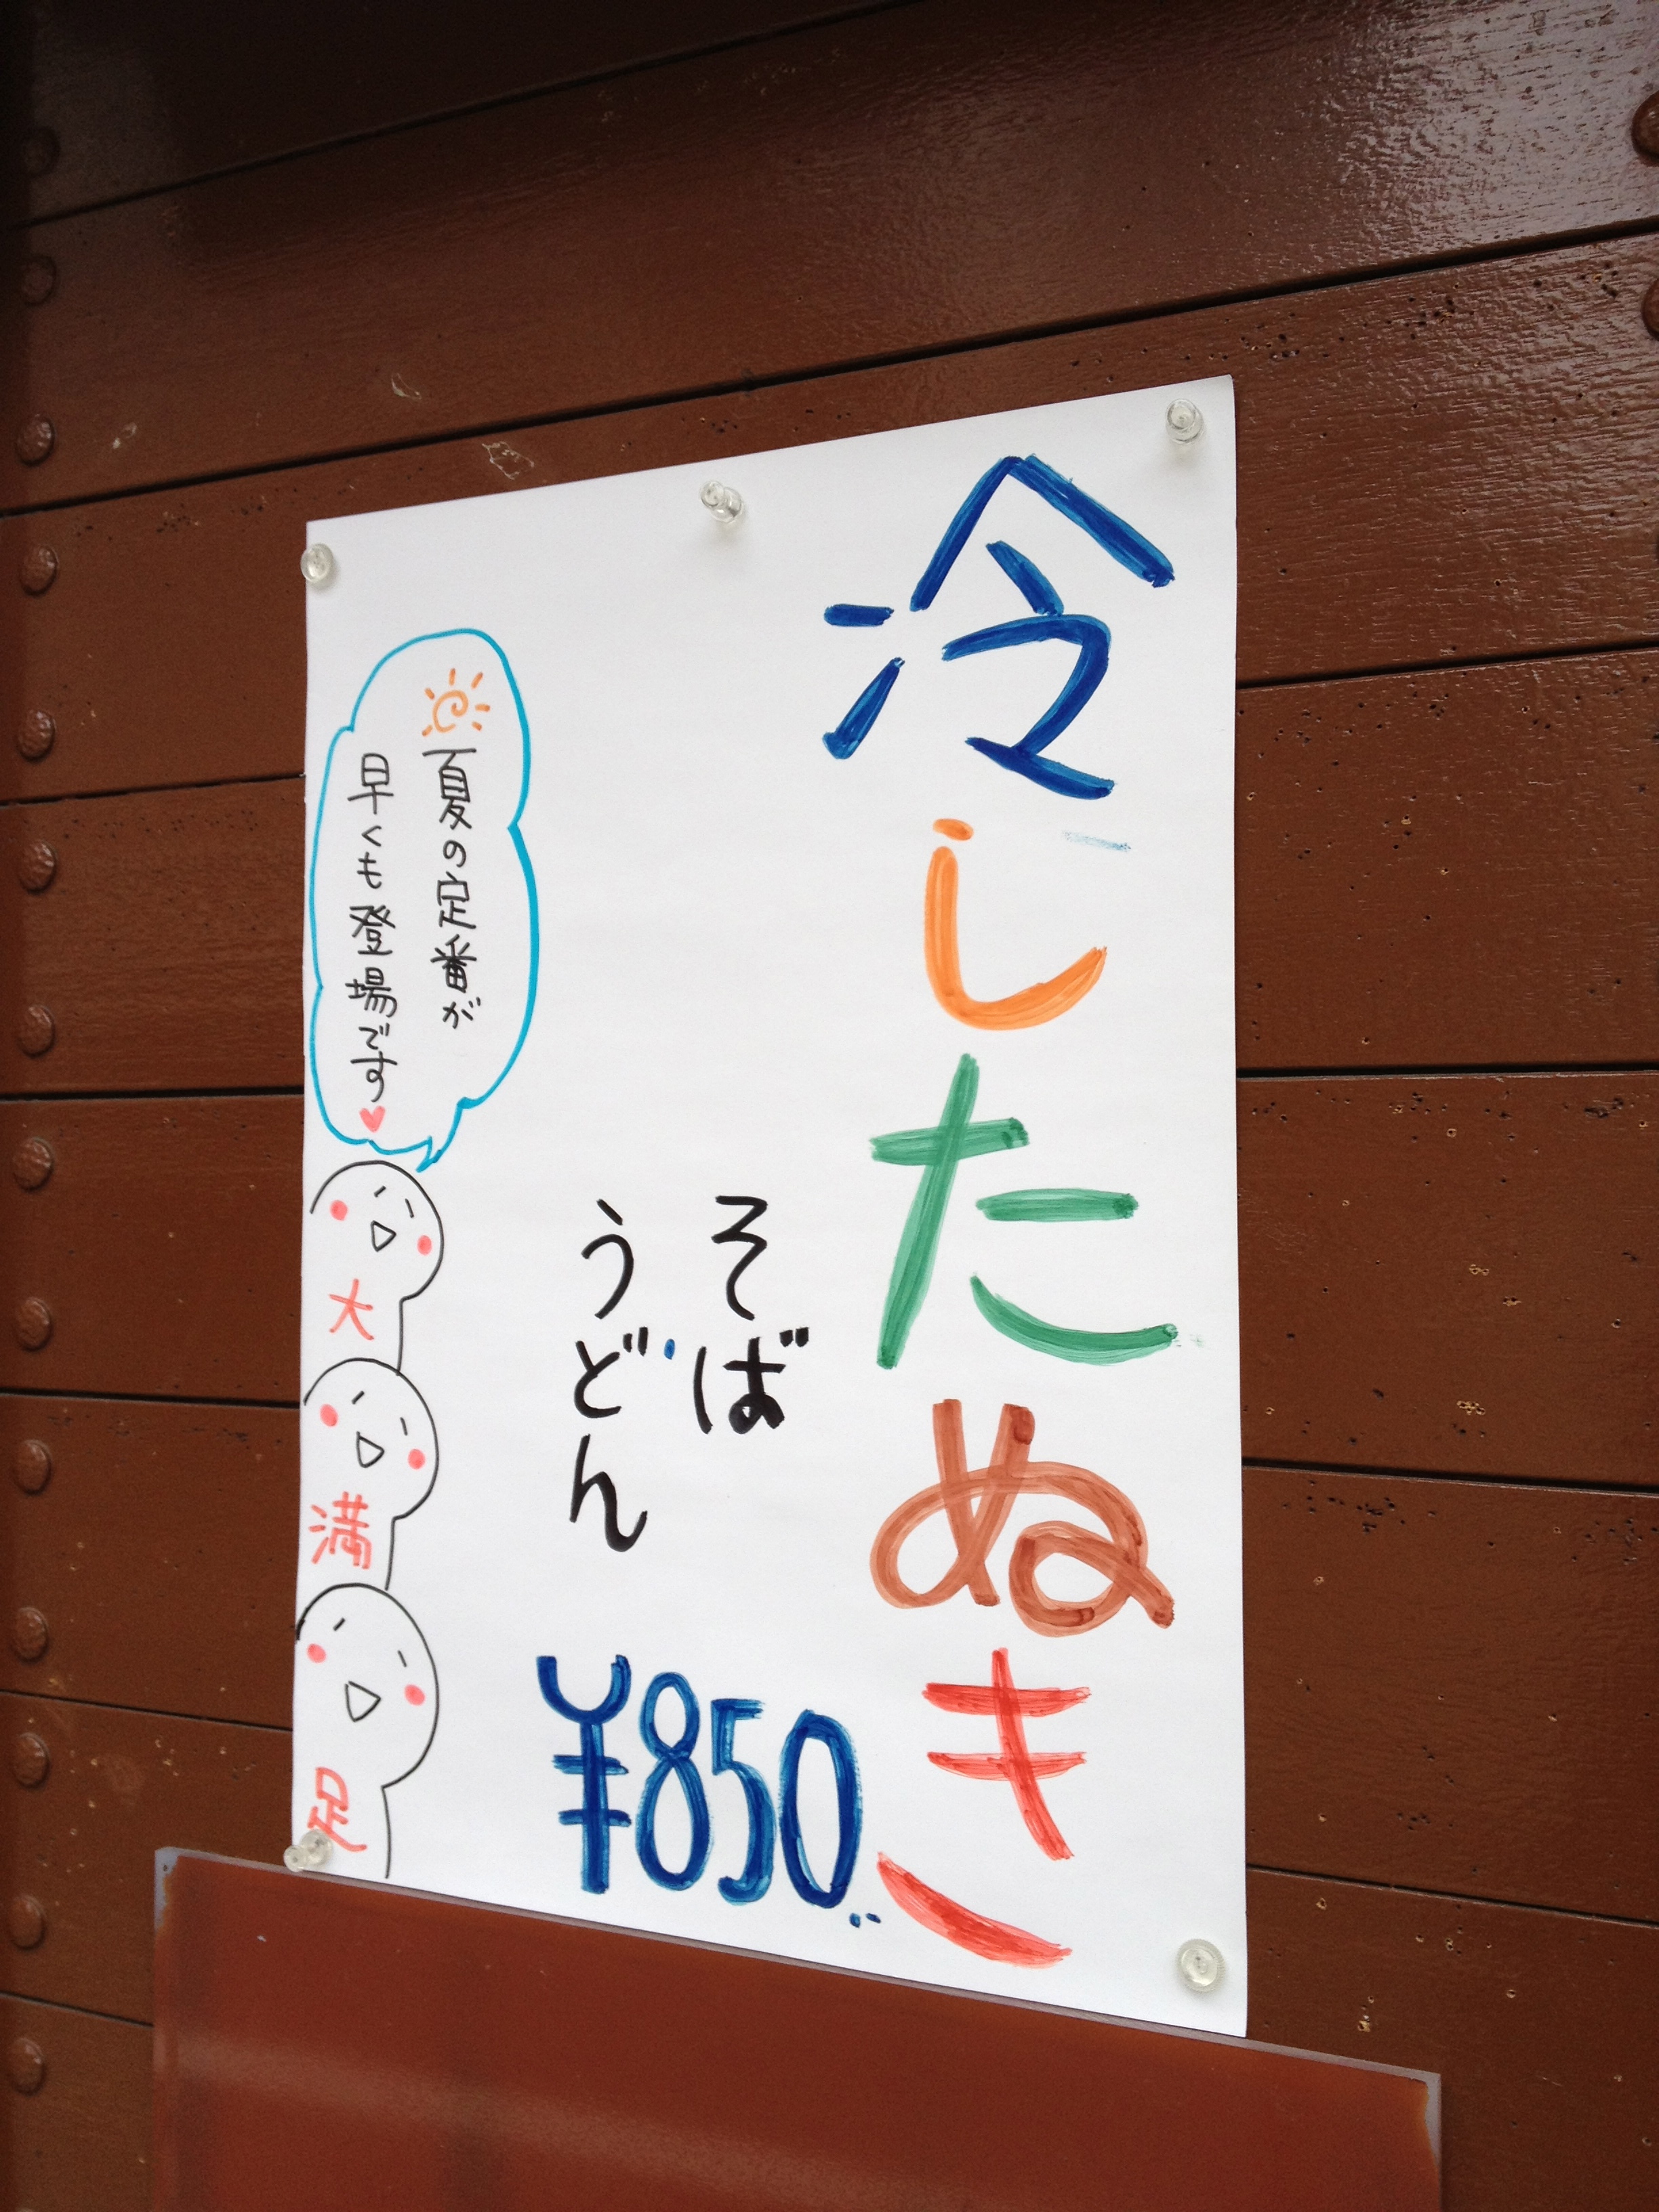 冷したぬき
そば
うどん
¥850
夏の定番が
早くも登場です
大
満
足